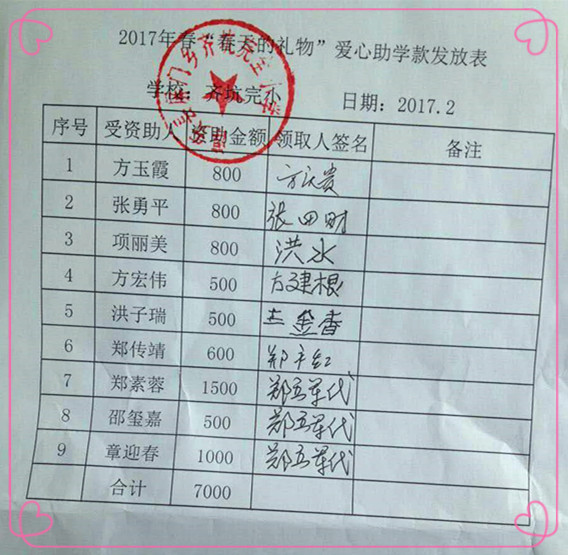 2017年春“春天的礼物”爱心助学款发放表
学校：齐坑完小 日期：2017.2
序号 受资助人 资助金额 领取人签名 备注
1 方玉霞 800
2 张勇平 800 张田财
3 项丽美 800 洪水
4 方宏伟 500 方建根
5 洪子瑞 500
6 郑传靖 600
7 郑素蓉 1500
8 邵玺嘉 500
9 章迎春 1000
合计 7000